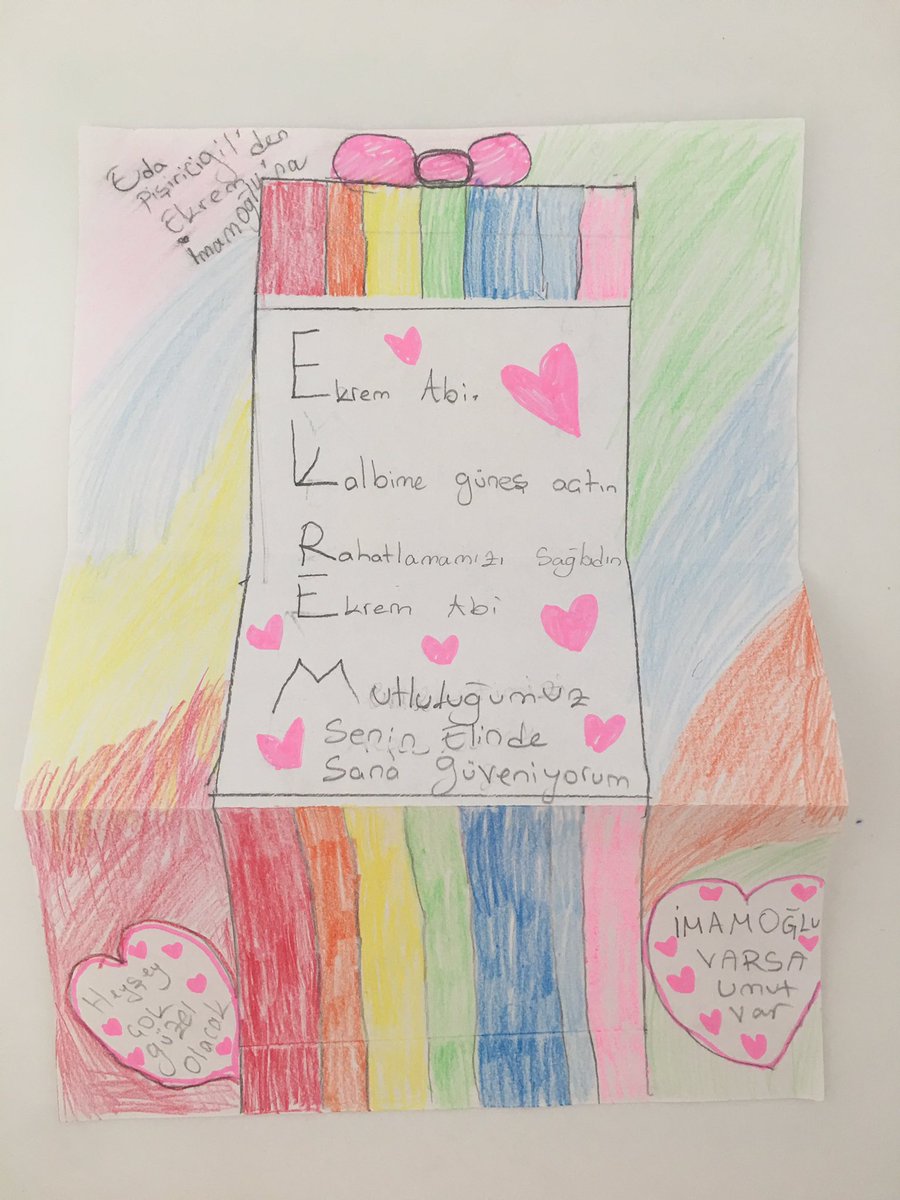 Eda
Pişiricigil'den
Ekrem
İmamoğlu'na
Ekrem Abi.
Kalbime güneş açtın
Rahatlamamızı sağladın
Ekrem Abi
Mutluluğumuz
Senin Elinde
Sana güveniyorum
Heyşey
çok
güzel
olacak
İMAMOĞLU
VARSA
umut
var